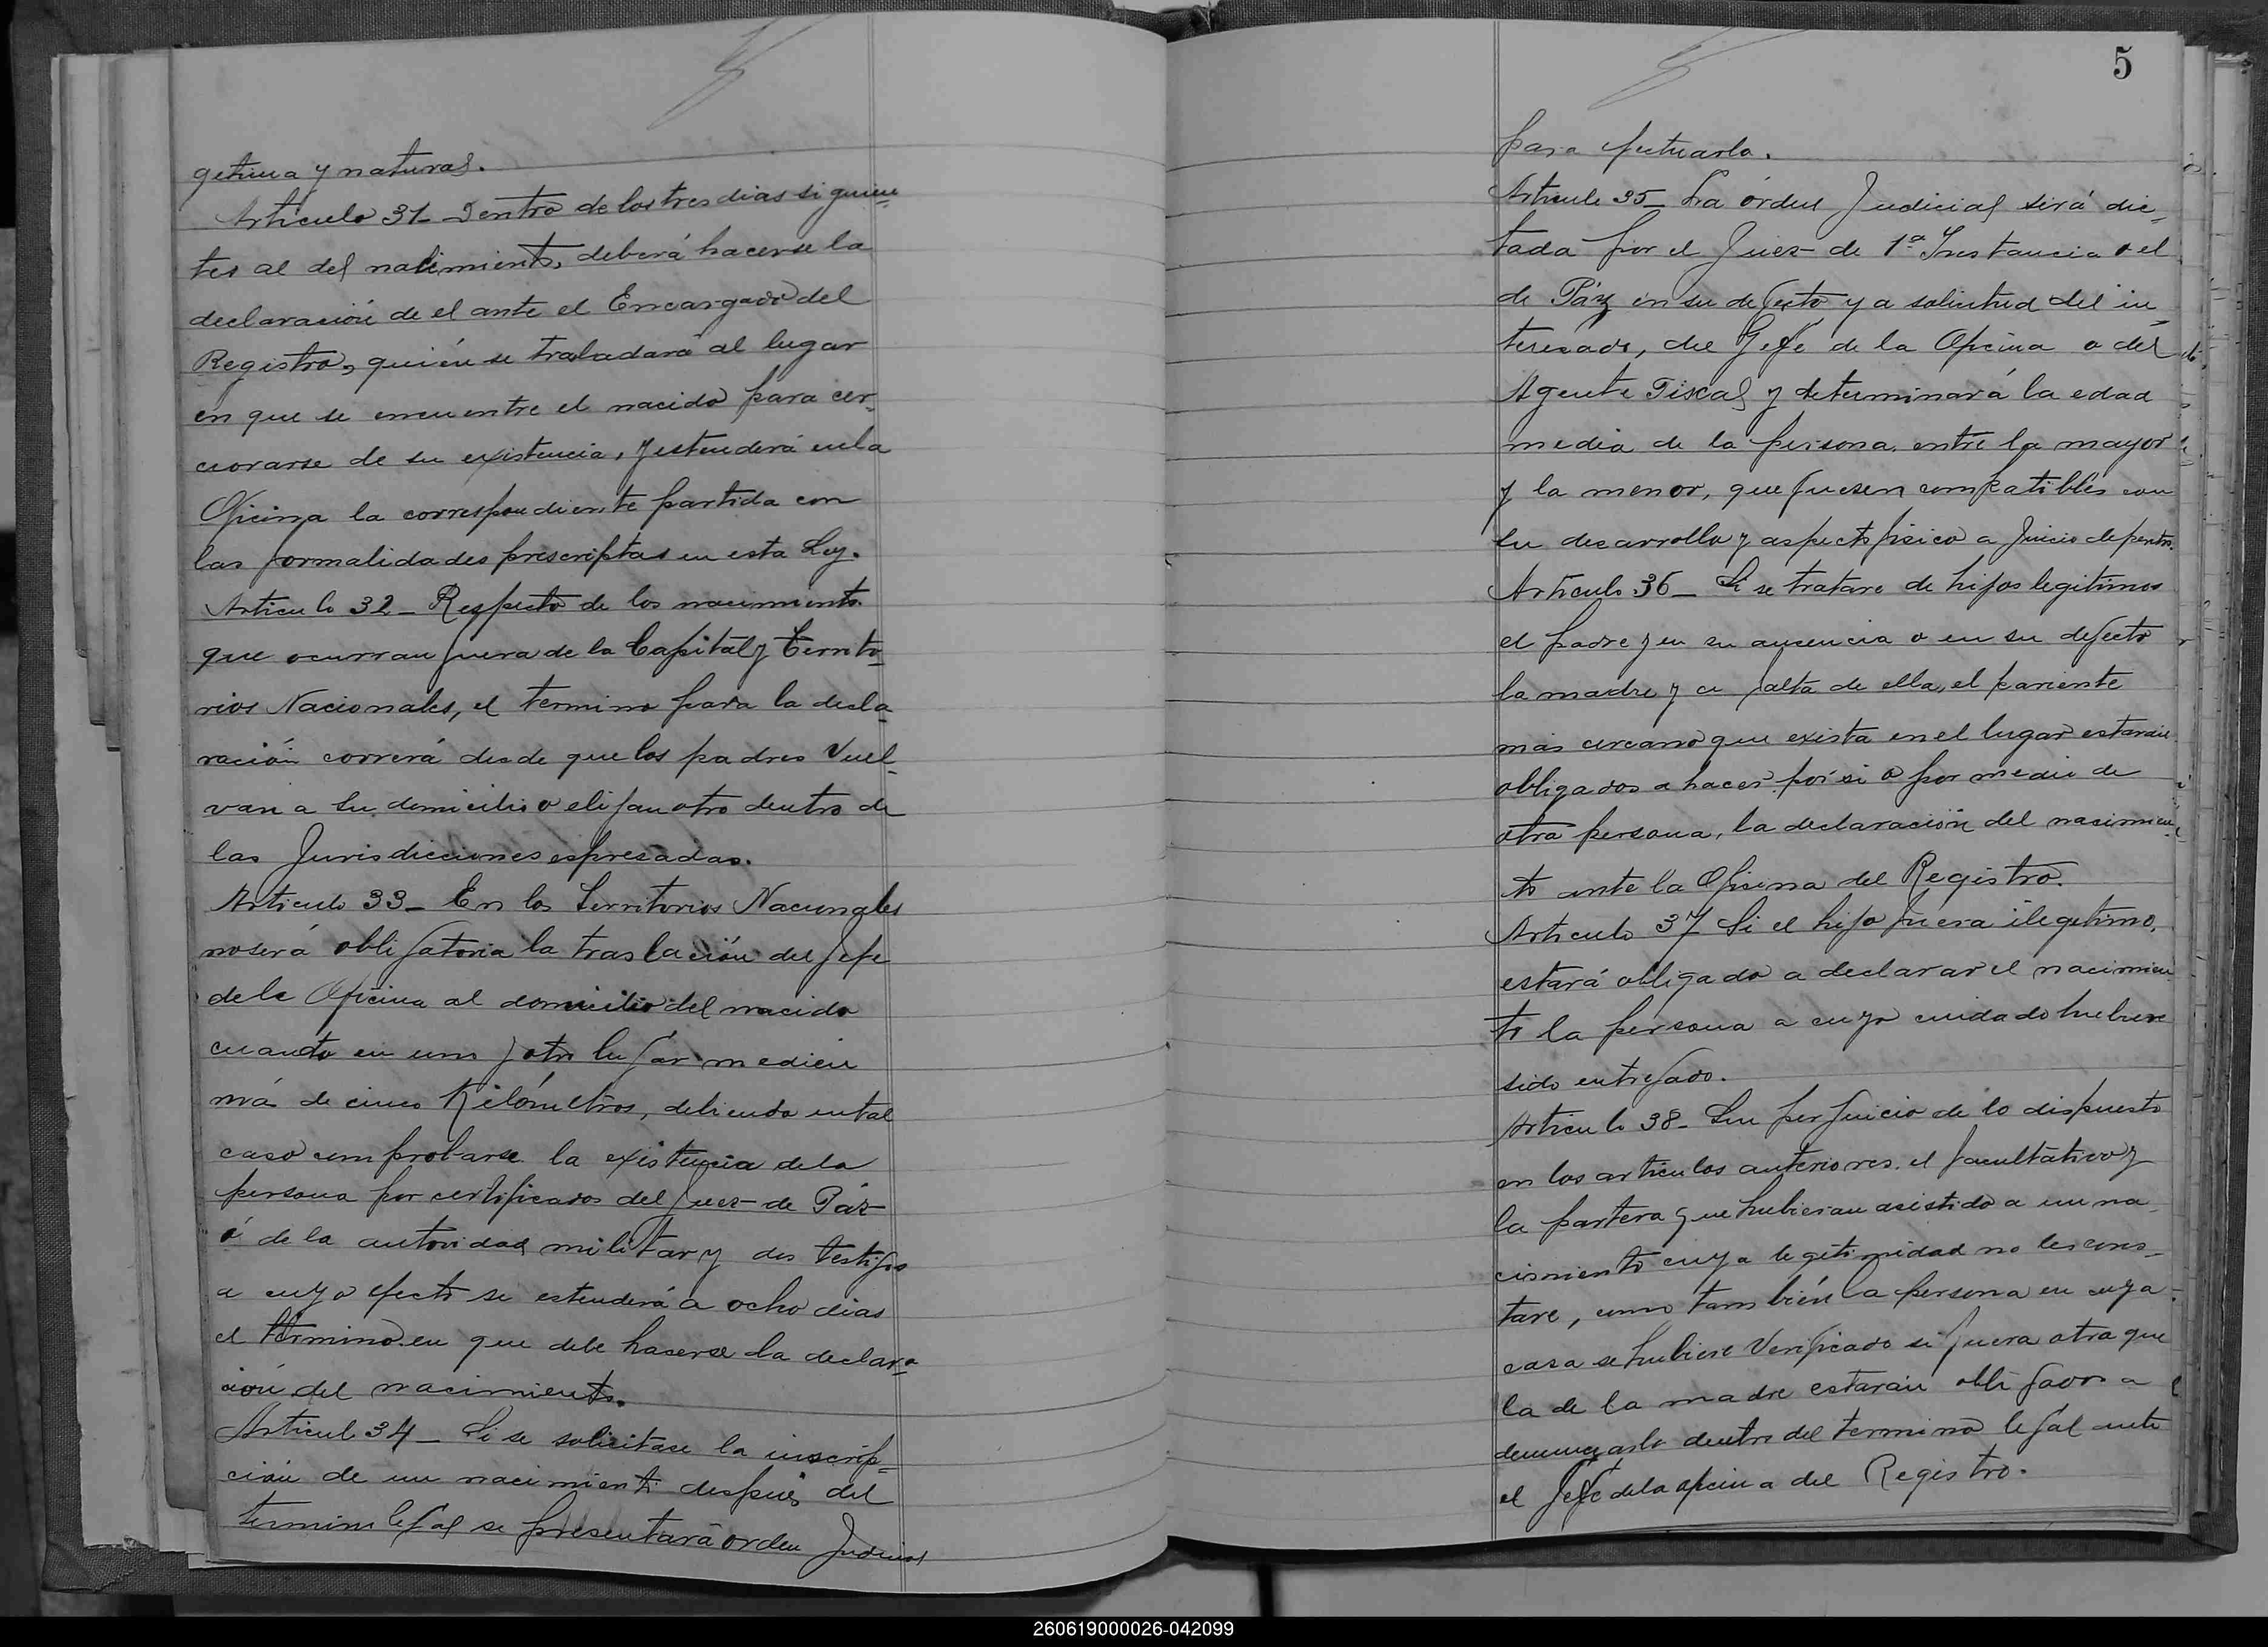 getima y natural.
Articulo 31 - Dentro de los tres dias siguien=
tes al del nacimiento, deberá hacerse la
declaración de el ante el Encargado del
Registro, quién se trasladará al lugar
en que se encuentre el nacido para cer-
ciorarse de su existencia, y estenderá en la
Oficina la correspondiente partida con
las formalidades prescriptas en esta Ley.
Articulo 32 - Respecto de los nacimientos
que ocurran fuera de la Capital y Territo-
rios Nacionales, el termino para la decla-
ración correrá desde que los padres vuel-
van a su domicilio o elijan otro dentro de
las Jurisdicciones espresadas.
Articulo 33 - En los Territorios Nacionales
no será obligatoria la traslación del Jefe
de la Oficina al domicilio del nacido
cuando en uno y otro lugar medien
má de cinco Kilómetros, debiendo en tal
caso comprobarse la existencia de la
persona por certificados del Juez de Páz
ó de la autoridad militar y dos testigos
a cuyo efecto se estenderá a ocho dias
el término en que debe hacerse la declara-
ción del nacimiento.
Articulo 34 - Si se solicitase la inscrip-
ción de un nacimiento después del
termino legal se presentará orden Judicial
5
para efectuarla.
Articulo 35 - La órden Judicial será dic-
tada por el Juez de 1ª Instancia o el
de Páz en su defecto y a solicitud del in
teresado, del Gefe de la Oficina o del
Agente Fiscal y determinará la edad
media de la persona entre la mayor
y la menor, que fuesen compatibles con
su desarrollo y aspecto fisico a Juicio de peritos.
Articulo 36 - Si se tratare de hijos legitimos
el padre y en su ausencia o en su defecto
la madre y a falta de ella, el pariente
más cercano que exista en el lugar estarán
obligados a hacer por si o por medio de
otra persona, la declaración del nacimien-
to ante la Oficina del Registro.
Articulo 37 Si el hijo fuera ilegitimo,
estará obligado a declarar el nacimien
to la persona a cuyo cuidado hubiere
sido entregado.
Articulo 38 - Sin perjuicio de lo dispuesto
en los articulos anteriores el facultativo y
la partera que hubieran asistido a un na
cimiento cuya legitimidad no les cons-
tare, como también la persona en cuya
casa se hubiere verificado si fuera otra que
la de la madre estarán obligados a
denunciarlo dentro del termino legal ante
el Jefe de la oficina del Registro.
260619000026-042099